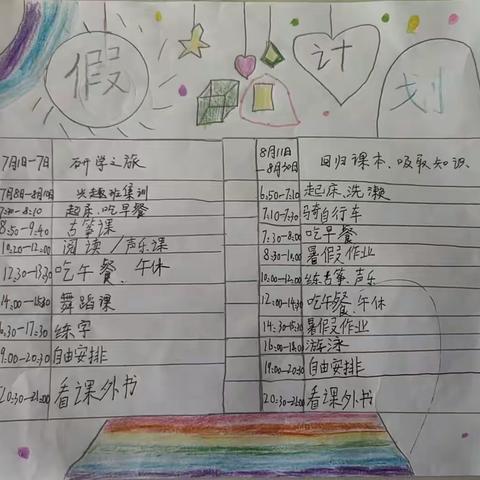 假
计
划
7月1日-7日 研学之旅
7月8日-8月10日 兴趣班集训
7:30-8:10 起床、吃早餐
8:50-9:40 古筝课
10:20-12:00 阅读/声乐课
12:30-13:30 吃午餐、午休
14:00-15:30 舞蹈课
16:30-17:30 练字
19:00-20:30 自由安排
20:30-21:00 看课外书
8月11日-8月30日 回归课本、吸取知识
6:50-7:10 起床、洗漱
7:10-7:30 骑自行车
7:30-8:00 吃早餐
8:30-10:00 暑假作业
10:00-12:00 练古筝、声乐
12:00-14:30 吃午餐、午休
14:30-15:30 暑假作业
16:00-18:00 游泳
19:00-20:30 自由安排
20:30-21:00 看课外书